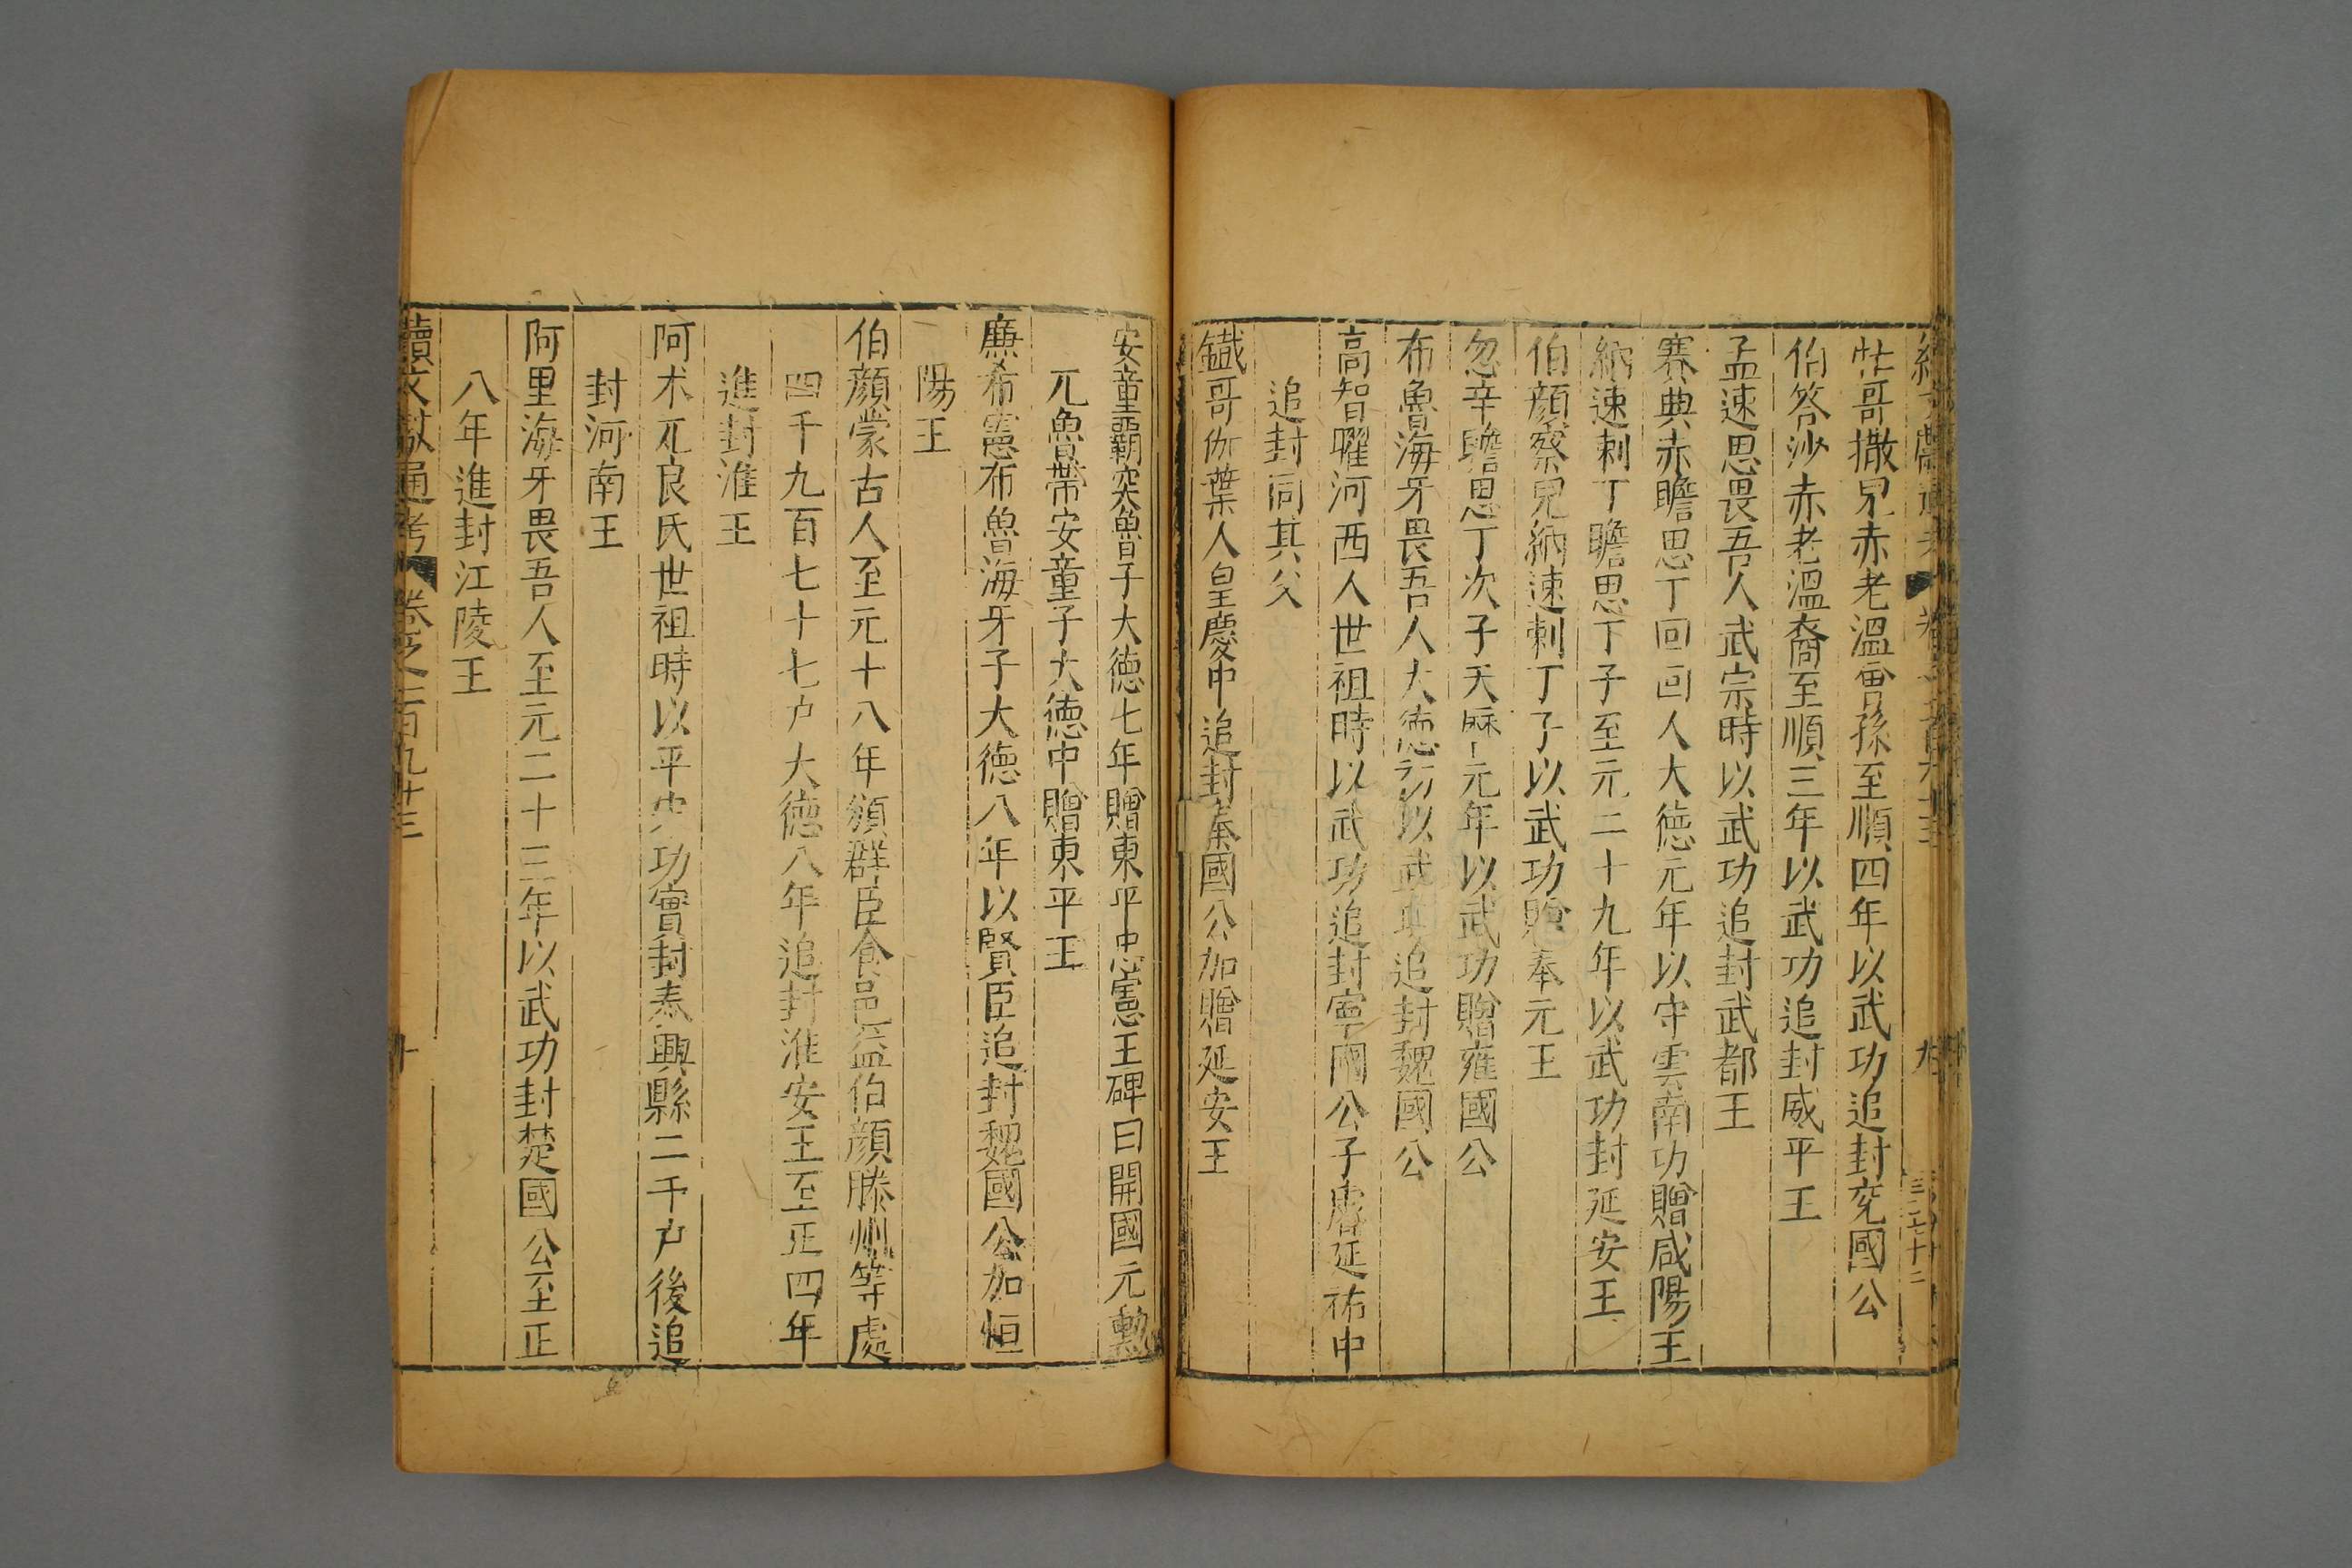 忙哥撒兒赤老溫曾孫至順四年以武功追封兖國公
伯答沙赤老溫裔至順三年以武功追封威平王
孟速思畏吾人武宗時以武功追封武都王
賽典赤瞻思丁回回人大德元年以守雲南功贈咸陽王
納速剌丁瞻思丁子至元二十九年以武功封延安王
伯顔察兒納速剌丁子以武功贈奉元王
忽辛瞻思丁次子天曆元年以武功贈雍國公
布魯海牙畏吾人大德初以武功追封魏國公
高智曜河西人世祖時以武功追封寧國公子睿延祐中
追封同其父
鐵哥伽葉人皇慶中追封秦國公加贈延安王
安童霸突魯子大德七年贈東平忠憲王碑曰開國元勲
兀魯帶安童子大德中贈東平王
廉希憲布魯海牙子大德八年以賢臣追封魏國公加恒
陽王
伯顔蒙古人至元十八年頒群臣食邑益伯顔滕州等處
四千九百七十七户大德八年追封淮安王至正四年
進封淮王
阿术兀良氏世祖時以平宋功實封泰興縣二千户後追
封河南王
阿里海牙畏吾人至元二十三年以武功封楚國公至正
八年進封江陵王
續文獻通考 卷之一百九十三 十